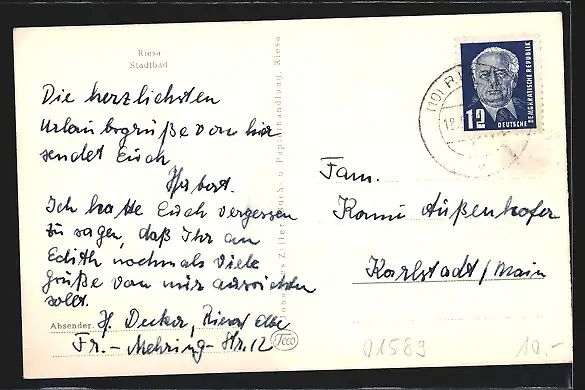 Riesa
Stadtbad
Die herzlichsten
Urlaubsgrüße von hier
sendet Euch
Herbert.
Ich hatte Euch vergessen
zu sagen, daß Ihr an
Edith nochmals viele
Grüße von mir ausrichten
sollt.
Absender: H. Decker, Riesa/Elbe
Fr.-Mehring-Str. 12
Johannes Ziller, Buch- u. Papierhandlung, Riesa
Teco
12
DEUTSCHE
DEMOKRATISCHE REPUBLIK
(10) R
18.
Fam.
Außenhofer
Karlstadt/Main
01589
10.-